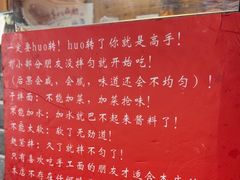 一定要huo转！huo转了你就是高手！
有小部分朋友没拌匀就开始吃！
（后果会咸，会腻，味道还会不均匀）！
干拌面：不能加菜，加菜抢味！
不能加水：加水就巴不起来酱料了！
不能太软：软了无劲道！
趁热拌：久了就拌不匀了！
只有喜欢吃手工面的朋友才适合
本店不存在任何